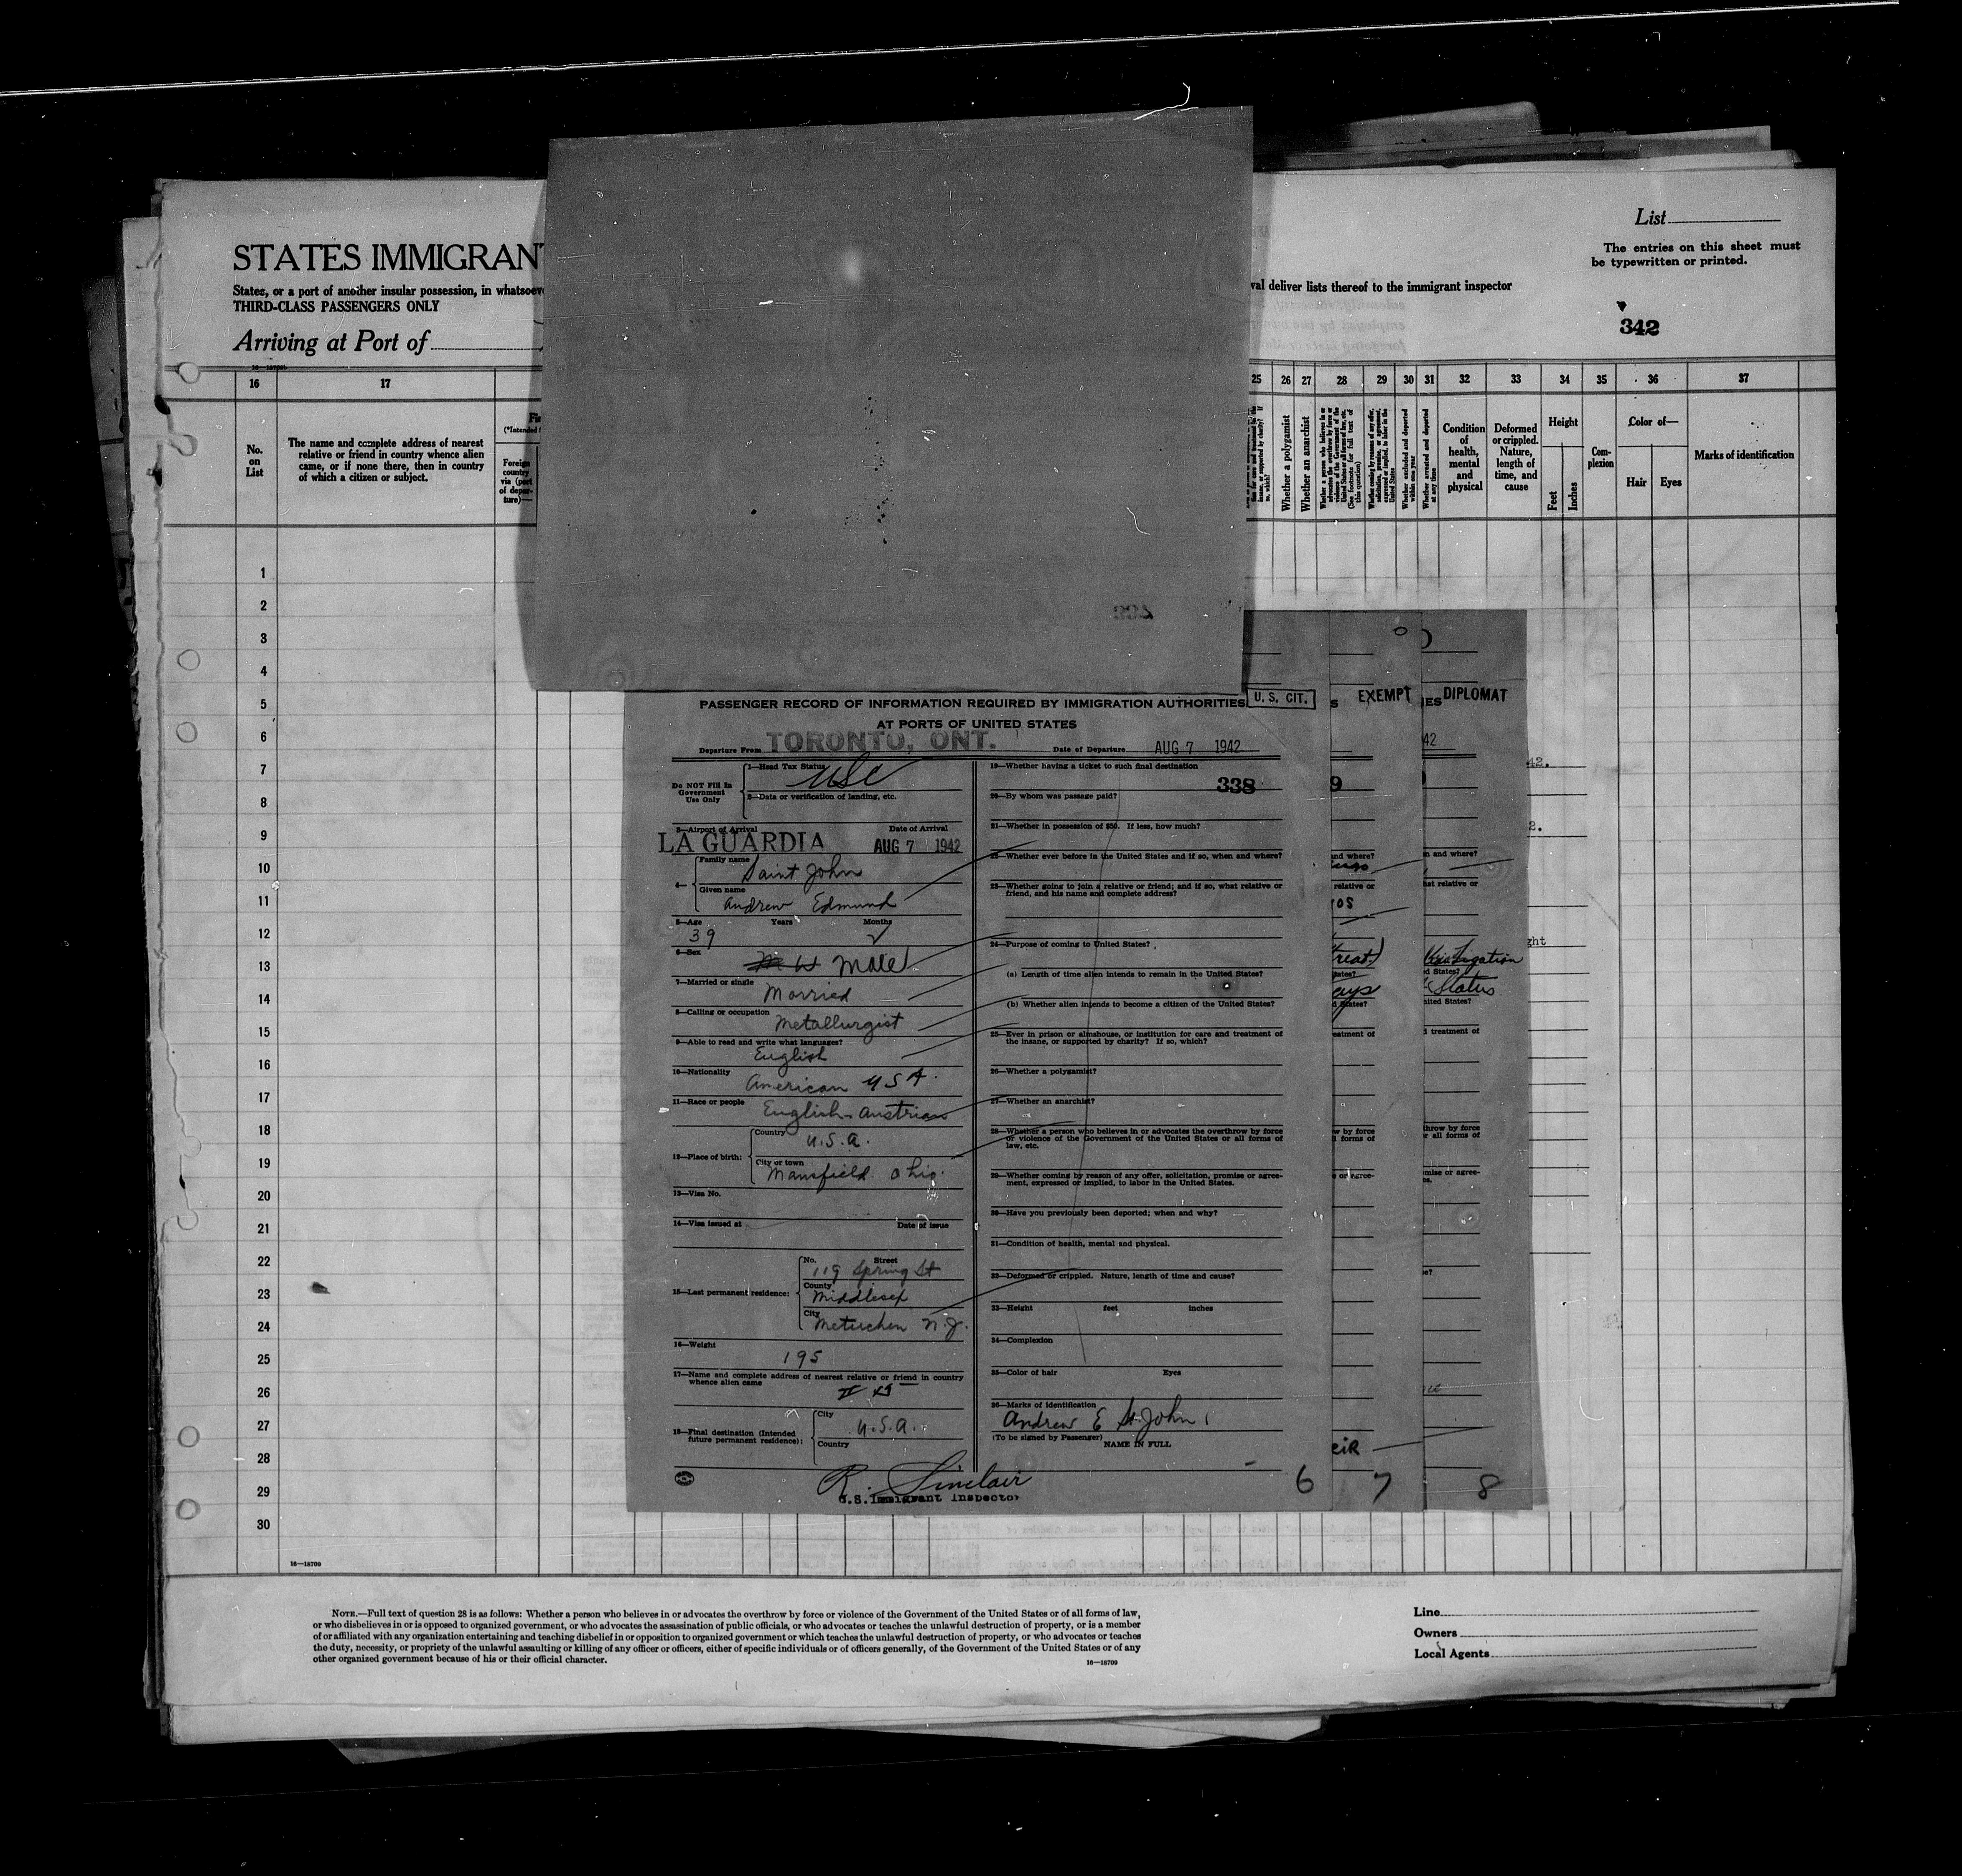 List
The entries on this sheet must
be typewritten or printed.
STATES IMMIGRAN
States, or a port of another insular possession, in whatsoev
val deliver lists thereof to the immigrant inspector
THIRD-CLASS PASSENGERS ONLY
342
Arriving at Port of
16 17 25 26 27 28 29 30 31 32 33 34 35 36 37
No. on List
The name and complete address of nearest
relative or friend in country whence alien
came, or if none there, then in country
of which a citizen or subject.
Foreign
country
via (port
of depar-
ture)—
Whether a polygamist
Whether an anarchist
Condition
of
health,
mental
and
physical
Deformed
or crippled.
Nature,
length of
time, and
cause
Height
Feet
Inches
Com-
plexion
Color of—
Hair Eyes
Marks of identification
1
2
3
4
5
6
7
8
9
10
11
12
13
14
15
16
17
18
19
20
21
22
23
24
25
26
27
28
29
30
PASSENGER RECORD OF INFORMATION REQUIRED BY IMMIGRATION AUTHORITIES
U. S. CIT.
EXEMPT
DIPLOMAT
AT PORTS OF UNITED STATES
Departure From TORONTO, ONT. Date of Departure AUG 7 1942
Do NOT Fill In
Government
Use Only
1—Head Tax Status USC
2—Data or verification of landing, etc.
3—Airport of Arrival Date of Arrival
LA GUARDIA AUG 7 1942
4— Family name Saint John
Given name
Andrew Edmund
5—Age Years Months
39
6—Sex Male
7—Married or single
Married
8—Calling or occupation Metallurgist
9—Able to read and write what languages?
English
10—Nationality American USA.
11—Race or people English-Austrian
12—Place of birth: Country U.S.A.
City or town
Mansfield Ohio.
13—Visa No.
14—Visa issued at Date of issue
15—Last permanent residence: No. Street
119 Spring St
County
Middlesex
City
Metuchen N.J.
16—Weight
195
17—Name and complete address of nearest relative or friend in country
whence alien came
18—Final destination (Intended
future permanent residence):
City U.S.A.
Country
19—Whether having a ticket to such final destination
338
20—By whom was passage paid?
21—Whether in possession of $50. If less, how much?
22—Whether ever before in the United States and if so, when and where?
23—Whether going to join a relative or friend; and if so, what relative or
friend, and his name and complete address?
24—Purpose of coming to United States?
(a) Length of time alien intends to remain in the United States?
(b) Whether alien intends to become a citizen of the United States?
25—Ever in prison or almshouse, or institution for care and treatment of
the insane, or supported by charity? If so, which?
26—Whether a polygamist?
27—Whether an anarchist?
28—Whether a person who believes in or advocates the overthrow by force
or violence of the Government of the United States or all forms of
law, etc.
29—Whether coming by reason of any offer, solicitation, promise or agree-
ment, expressed or implied, to labor in the United States.
30—Have you previously been deported; when and why?
31—Condition of health, mental and physical.
32—Deformed or crippled. Nature, length of time and cause?
33—Height feet inches
34—Complexion
35—Color of hair Eyes
36—Marks of identification
Andrew E St. John
(To be signed by Passenger)
NAME IN FULL
R. Sinclair
U.S. Immigrant Inspector
6 7 8
16—18709
NOTE.—Full text of question 28 is as follows: Whether a person who believes in or advocates the overthrow by force or violence of the Government of the United States or of all forms of law,
or who disbelieves in or is opposed to organized government, or who advocates the assassination of public officials, or who advocates or teaches the unlawful destruction of property, or is a member
of or affiliated with any organization entertaining and teaching disbelief in or opposition to organized government or which teaches the unlawful destruction of property, or who advocates or teaches
the duty, necessity, or propriety of the unlawful assaulting or killing of any officer or officers, either of specific individuals or of officers generally, of the Government of the United States or of any
other organized government because of his or their official character.
16—18709
Line
Owners
Local Agents